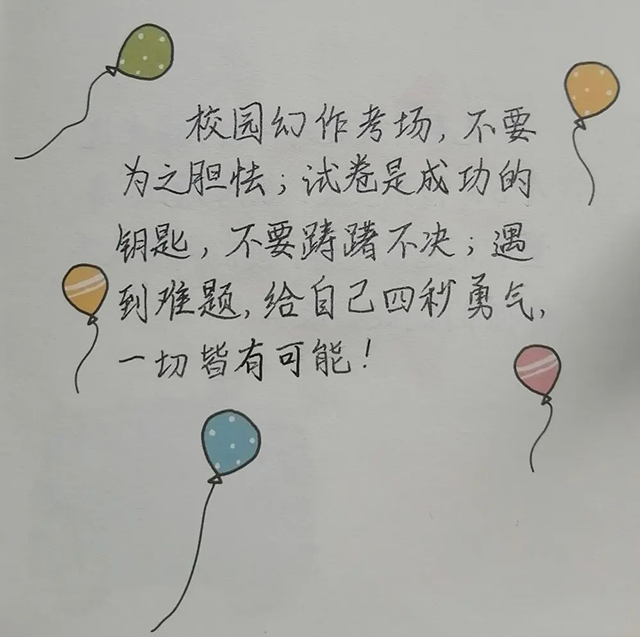 校园幻作考场，不要
为之胆怯；试卷是成功的
钥匙，不要踌躇不决；遇
到难题，给自己四秒勇气，
一切皆有可能！